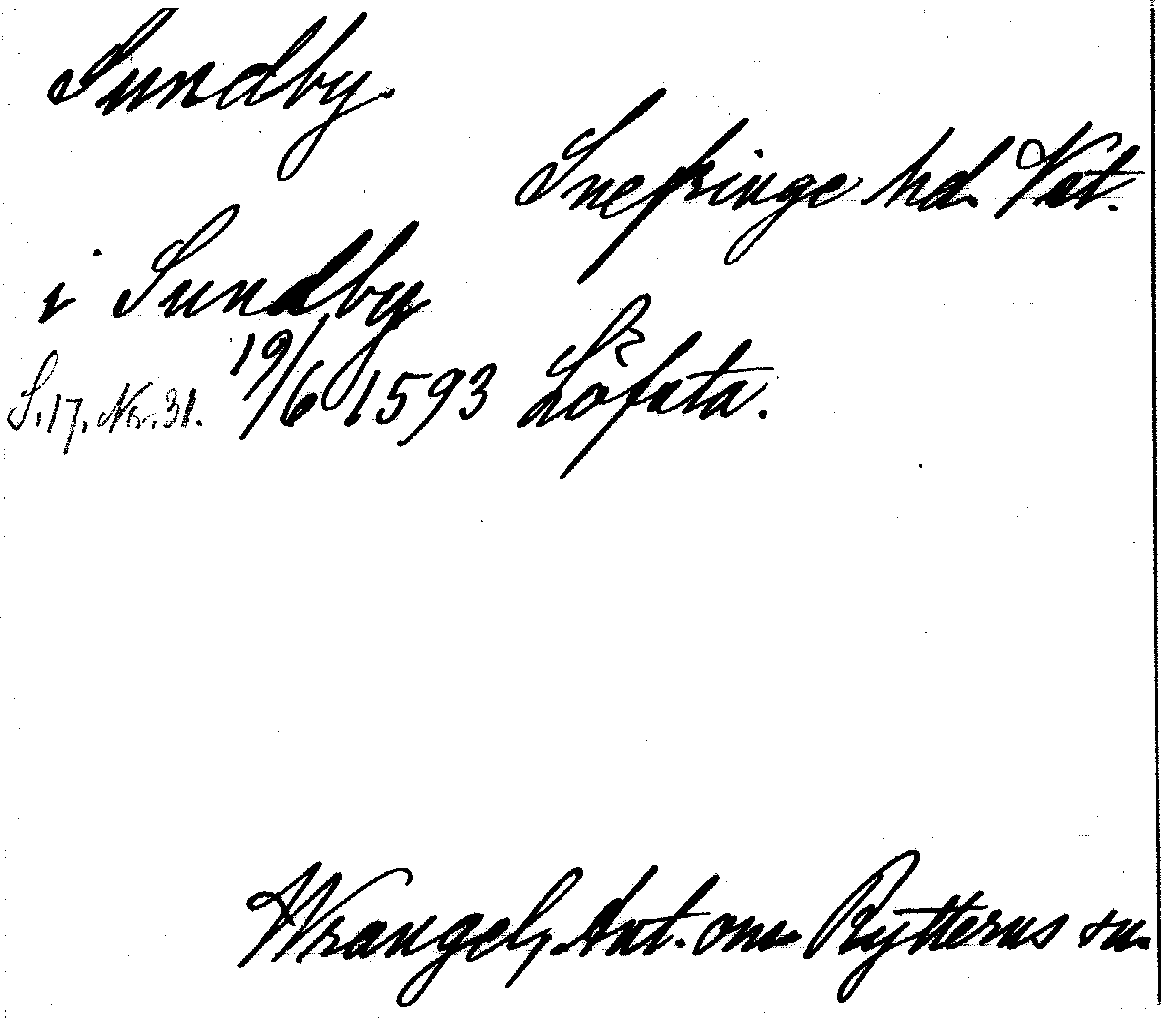 Sundby.
Snefringe hd. Vst.
i Sundby
S. 17. Nr. 31. 19/6 1593 Löfsta.
Wrangel, Ant. om Rytterns sn.